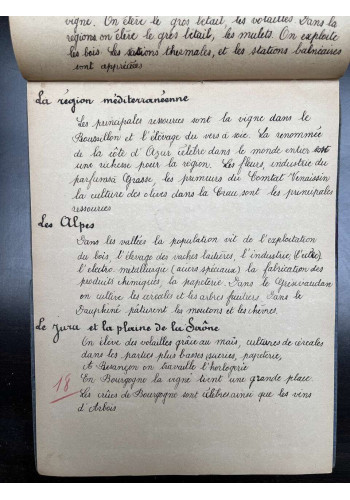 vigne. On élève le gros bétail, les volailles. Dans la
régions on élève le gros bétail, les mulets. On exploite
les bois. Les stations thermales, et les stations balnéaires
sont appréciées
La région méditerranéenne
Les principales resources sont la vigne dans le
Roussillon et l'élevage du vers à soie. La renommée
de la côte d'Azur célèbre dans le monde entier est
une richesse pour la région. Les fleurs, industrie du
parfum à Grasse les primeurs du Comtat Venaissin
la culture des olives dans la Crau sont les principales
ressources
Les Alpes
Dans les vallées la population vit de l'exploitation
du bois, l'élevage des vaches laitières, l'industrie,
l'électro metallurgie (aciers spéciaux) la fabrication des
produits chimiques, la papeterie. Dans le Gresivaudan
on cultive les céréales et les arbres fruitiers. Dans le
Dauphiné pâturent les moutons et les chèvres.
Le Jura et la plaine de la Saône
On élève des volailles grâce au maïs, cultures de céréales
dans les parties plus basses, papeterie,
A Besançon on travaille l'horlogerie
18
En Bourgogne la vigne tient une grande place.
Les crûes de Bourgogne sont célèbres ainsi que les vins
d'Arbois